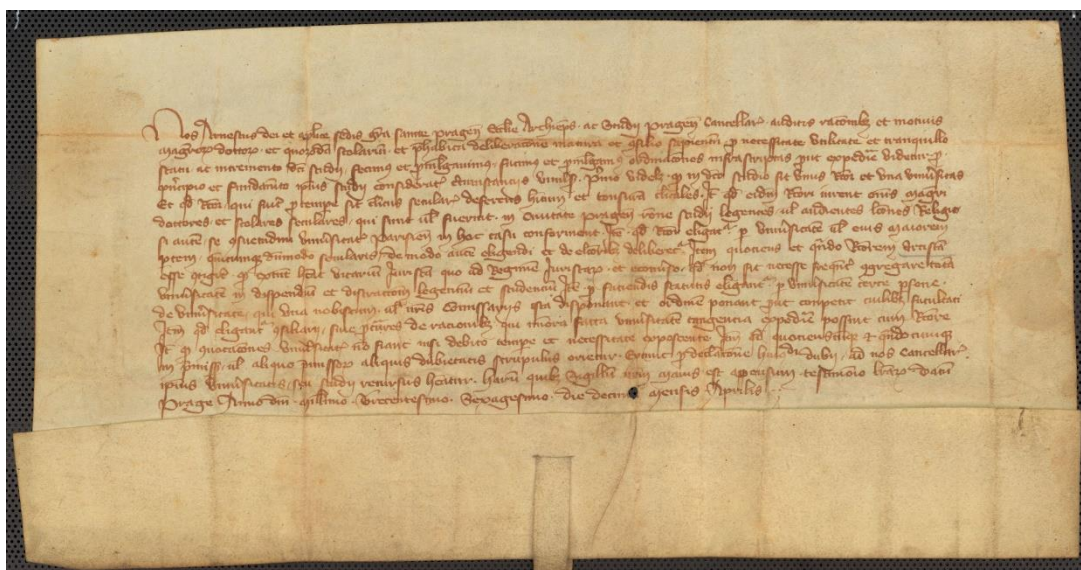 Nos Arnestus dei et aplice sedis gra sancte Pragen Eccle Archieps ac Studii Pragen Cancellar auditis raconibz et motiuis
magror doctor et quorda scolariu et phabita deliberacone matura et consilio sapientu p necessitate vtilitate et tranquillo
statu ac incremento dci studii fecimus et pmulgauimus facimus et pmulgam ordinaciones infrascriptas put expedire videtur p
principio et fundameto ipius studii consideratis circumstanciis Primo videlz q in dco studio sit vnus Rcor et vna vniuersitas
Et qd Rcor qui fuit p tempe sit clicus secular deferens habitum et tonsura clicales It qd eidem Rcori iurent omes magri
doctores et scolares seculares qui sunt ul fuerint in Ciuitate Pragen rone studii legentes ul audientes lcones Religio
si autem se consuetudini vniuersitatis Parisien in hoc casu conforment It qd Rcor eligatur p vniuersitate ul eius maiorem
ptem dummodo secularis de modo autem eligendi et de electoribz deliberetur Item quociens et qndo Rcorem Artistam
esse contigerit ex tunc habeat vicarium Juristam quo ad Regimen Juristar et econuerso It non sit necesse frequent congregare totam
vniuersitatem in dispendium et distractionem legentium et studencium It p faciendis statutis eligantur p vniuersitate certe psone
de vniuersitate que vna nobiscum ul nris Comissariis ista disponant et ordinem ponant put competit cuilibz facultati
Item qd eligantur consiliarii siue pcures de nacionibz qui minora facta vniuersitatem tangencia expedire possint cum Rcore
It q conuocaciones vniuersitatis no fiant nisi debito tempe et necessitate exposcente Item qd quocienscumqz et qndocumqz
in pmissis ul aliquo pmissor aliquis dubietatis scrupulus orietur p declaracone huiusmodi dubii ad nos Cancellar
ipius vniuersitatis seu studii recursus habeatur Haru quibz Sigillum nrm maius est appensum testimonio lrar datum
Prage Anno dni millimo Trecentesimo Sexagesimo die decima mensis Aprilis